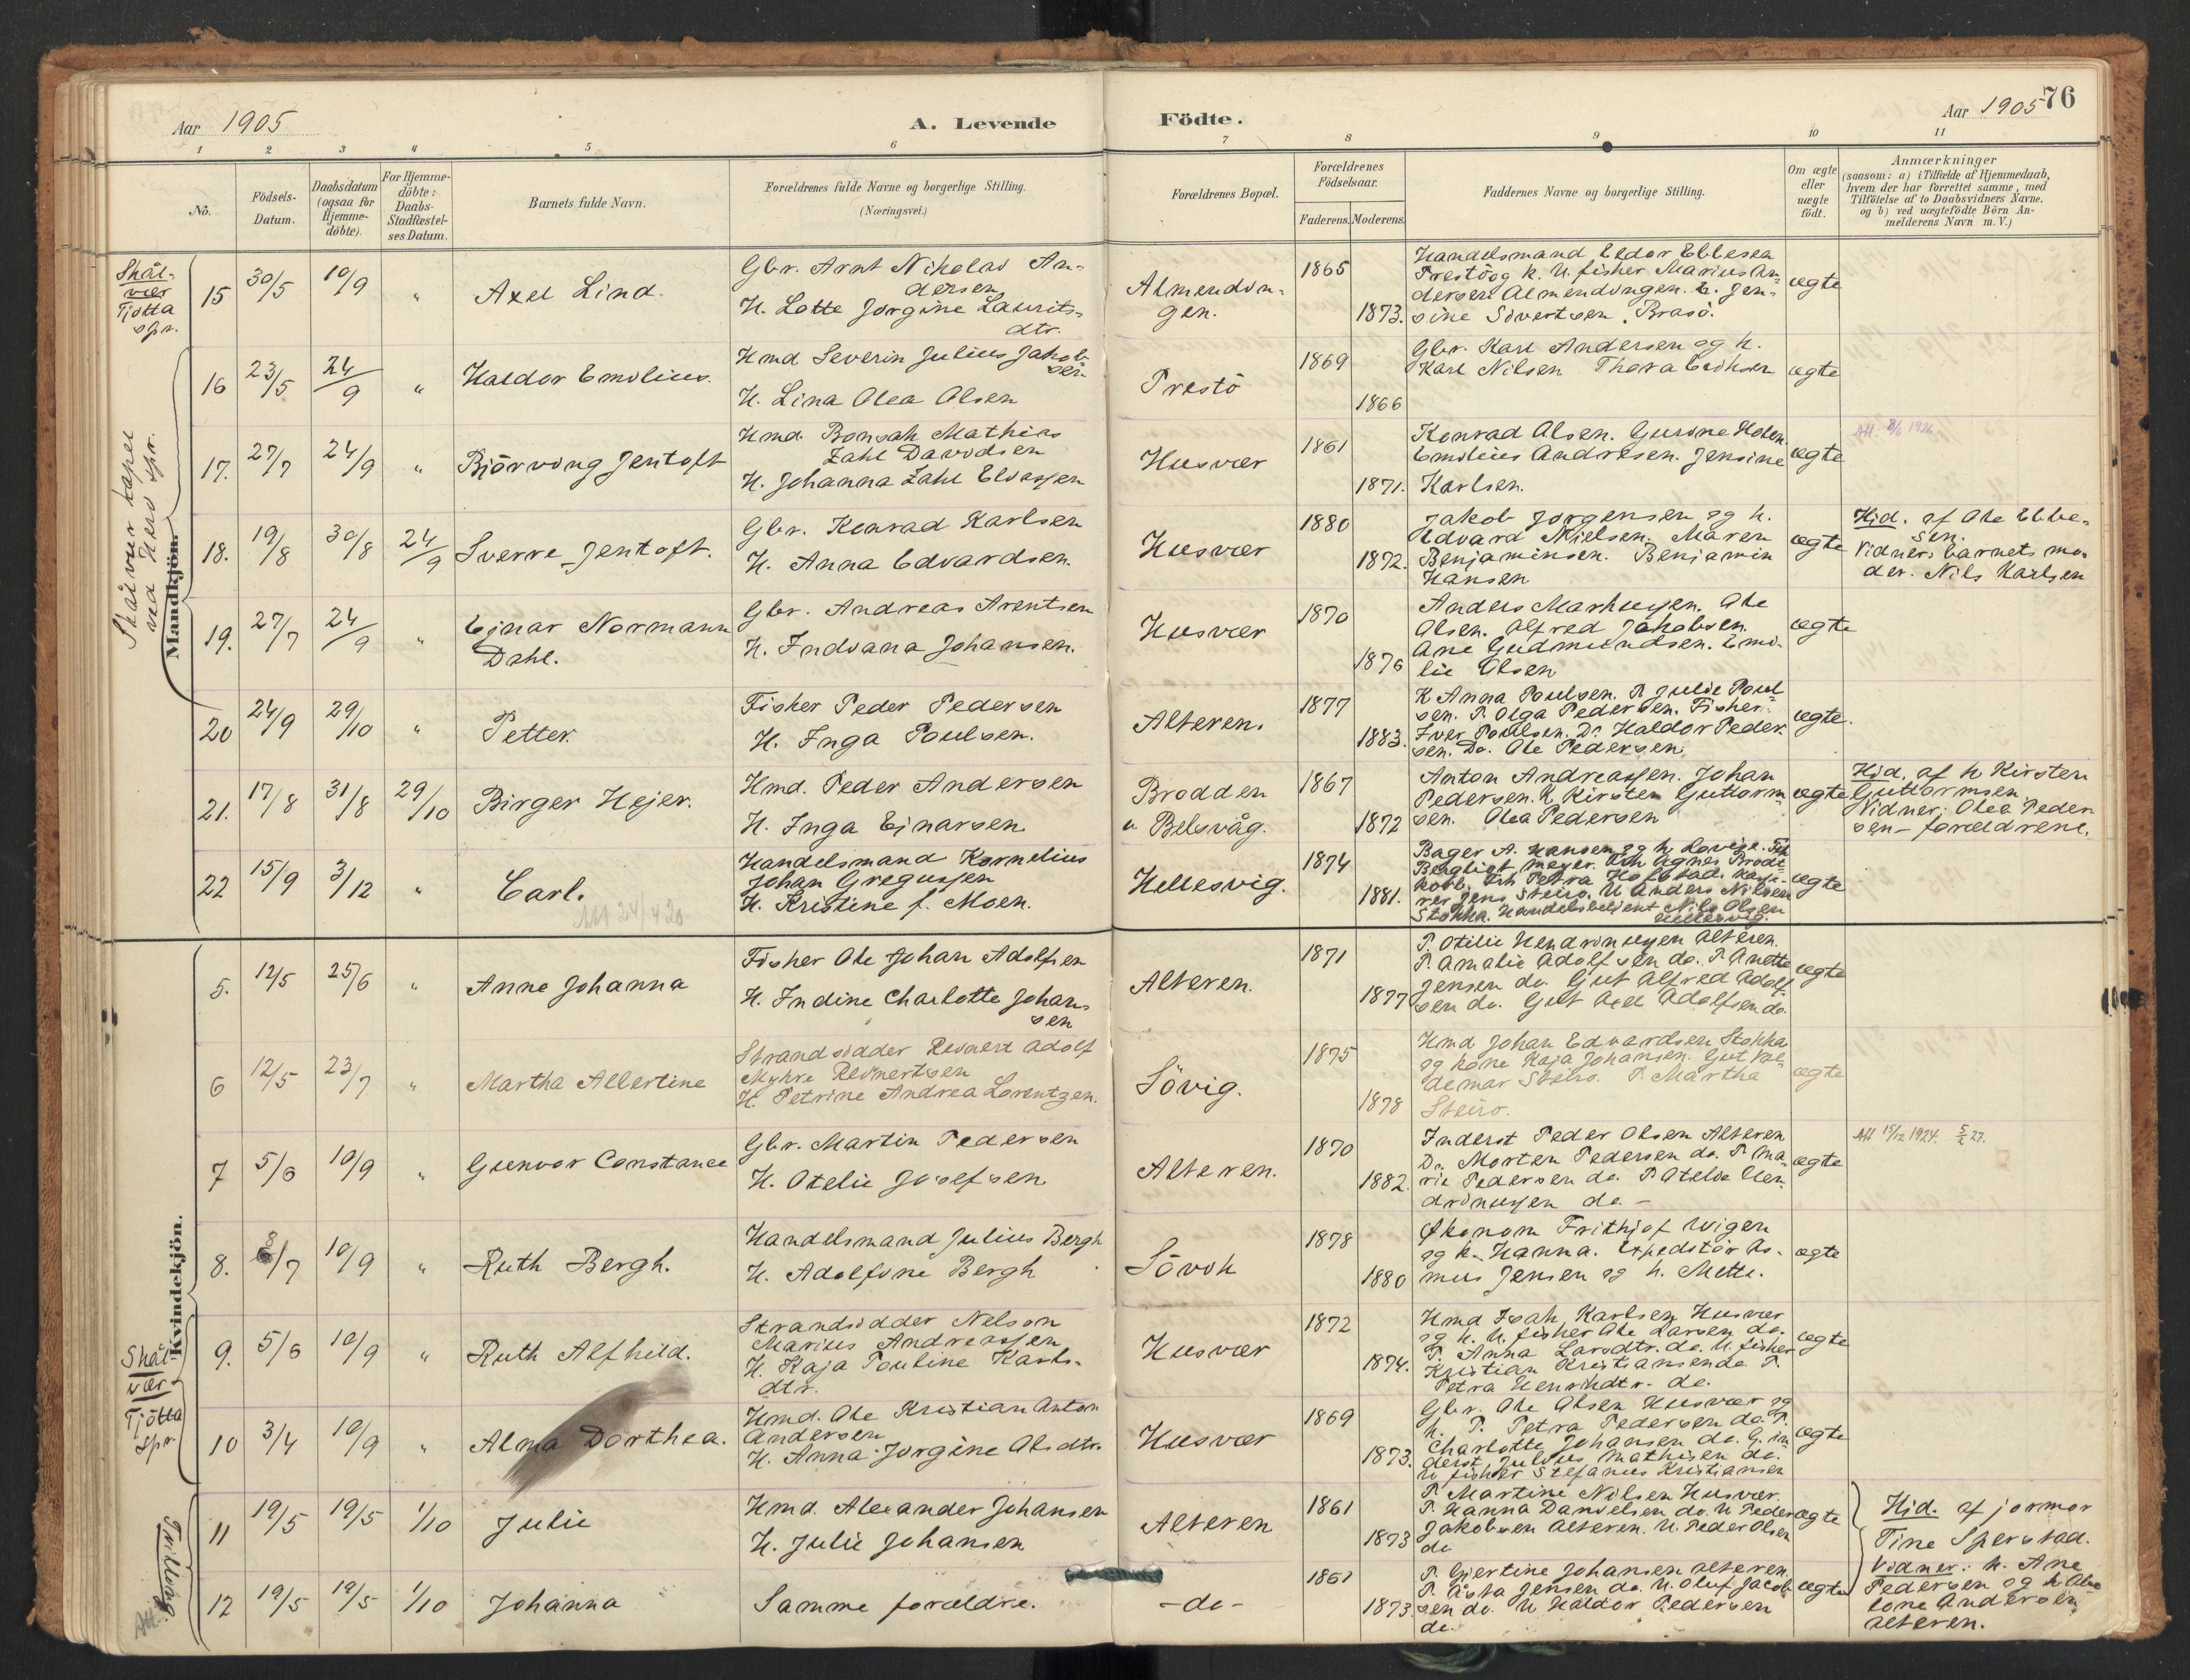 Aar 1905
A. Levende
Födte.
Aar 1905
76
1 2 3 4 5 6 7 8 9 10 11
No.
Födsels-
Datum.
Daabsdatum
(ogsaa for
Hjemme-
döbte).
For Hjemme-
döbte:
Daabs-
Stadfæstel-
ses Datum.
Barnets fulde Navn.
Forældrenes fulde Navne og borgerlige Stilling.
(Næringsvei.)
Forældrenes Bopæl.
Forældrenes
Födselsaar.
Faderens. Moderens.
Faddernes Navne og borgerlige Stilling.
Om ægte
eller
uægte
födt.
Anmærkninger
(saasom: a) i Tilfælde af Hjemmedaab,
hvem der har forrettet samme, med
Tilföielse af to Daabsvidners Navne.
og b) ved uægtefödte Börn An-
melderens Navn m. V.)
Skål-
vær
Tjøtta
spr.
15 30/5 10/9 " Axel Lind.
Gbr. Arnt Nikolai An-
dersen
H. Lotte Jorgine Laurits-
dtr.
Almendin-
gen.
1865
1873.
Handelsmand Eedor Ebbesen
Prestö og k. U. fisker Marius An-
dersen Almendingen. P. Jen-
sine Sivertsen. Brasö.
ægte
Skålvær kapel
ved Herö spr.
Mandkjön.
16 23/5 24/9 " Haldor Emilius.
Hmd Severin Julius Jakob-
sen
H. Lina Olea Olsen
Prestö
1869
1866
Gbr. Karl Andersen og k.
Karl Nilsen Thora Eriksen
ægte
17. 27/7 24/9 " Björving Jentoft
Hmd. Bonsak Mathias
Zahl Davidsen
H. Johanna Zahl Eliassen
Husvær
1861
1871.
Konrad Olsen. Gurine Holen.
Emilius Andresen. Jensine
Karlsen.
ægte
8/6 1926
18. 19/8 30/8 24/9 Sverre Jentoft.
Gbr. Konrad Karlsen
H. Anna Edvardsen.
Husvær
1880
1872.
Jakob Jorgensen og k.
Edvard Nielsen. Maren
Benjaminsen. Benjamin
Hansen
ægte
Hjd. af Ole Ebbe-
sen.
Vidner: barnets mo-
der. Nils Karlsen
19. 27/7 24/9 " Ejnar Normann
Dahl.
Gbr. Andreas Arentsen
H. Indiana Johansen.
Husvær
1870
1876
Anders Markussen. Ole
Olsen. Alfred Jakobsen.
Ane Gudmundsen. Emi-
lie Olsen
ægte
20 24/9 29/10 " Petter.
Fisker Peder Pedersen
H. Inga Poulsen.
Alteren.
1877
1883.
K Anna Poulsen. P. Julie Poul
sen. P. Olga Pedersen. Fisker
Iver Poulsen. Do Haldor Peder
sen. Do. Ole Pedersen
ægte.
21. 17/8 31/8 29/10 Birger Hejer.
Hmd. Peder Andersen
H. Inga Ejnarsen
Brodden
u Belsvåg.
1867
1872
Anton Andreassen. Johan
Pedersen. K Kirsten Guttorm-
sen. Olea Pedersen
ægte
Hjd. af k Kirsten
Guttormsen
Vidner: Olea Peder
sen – forældrene.
22 15/9 3/12 " Carl.
24/4 20
Handelsmand Kornelius
Johan Gregussen
H. Kristine f. Moen.
Hellesvig.
1874
1881.
Bager A. Hansen og k. Lovise. Frk
Bergliot Meyer. Frk Agnes Brodt
korb. Frk Petra Hofstad. Kasse-
rer Jens Steiro. U Anders Nilsen
Stokka. Handelsbetjent Nils Olsen
Hellesvig.
ægte
Kvindekjön.
5. 12/5 25/6 " Anne Johanna
Fisker Ole Johan Adolfsen
H. Indine Charlotte Johan-
sen
Alteren.
1871
1877
P. Otilie Hendrinussen Alteren.
P. Amalie Adolfsen do. P. Anette
Jensen do. Gut Alfred Adolf-
sen do. Gut Axel Adolfsen do.
ægte
6 12/5 23/7 " Martha Albertine
Strandsidder Reinert Adolf
Myhre Reinertsen
H. Petrine Andrea Lorentzen.
Sövig.
1875
1878
Hmd Johan Edvardsen Stokka
og kone Kaja Johansen. Gut Val-
demar Steiro. P. Martha
Steiro.
ægte
7 5/6 10/9 " Gunvor Constance
Gbr. Martin Pedersen
H. Otelie Josefsen
Alteren.
1870
1882.
Inderst Peder Olsen Alteren
Do. Morten Pedersen do. P. Ma-
rie Pedersen do. P Otelie Hen-
drinussen do. –
ægte
15/12 1924. 5/2 27.
8. 8/7 10/9 " Ruth Bergh.
Handelsmand Julius Bergh
H. Adolfine Bergh
Sövik
1878
1880
Økonom Frithjof Wigen
og k. Hanna. Expeditör As-
mus Jensen og k. Mette.
ægte
Skål-
vær
Tjötta
spr
9. 5/6 10/9 " Ruth Alfhild.
Strandsidder Nelson
Marius Andreassen
H. Kaja Pouline Karls-
dtr.
Husvær
1872
1874.
Hmd Isak Karlsen Husvær
og k. U. fisker Ole Larsen do.
P. Anna Larsdtr. do. U. fisker
Kristian Kristiansen do P.
Petra Henrikdtr. do.
ægte
10 3/4 10/9 " Alma Dorthea.
Hmd. Ole Kristian Anton
Andersen
H. Anna Jorgine Olsdtr.
Husvær
1869
1873.
Gbr. Ole Olsen Husvær og
k. P. Petra Pedersen do. P.
Charlotte Johansen do. G. in
derst Julius Mathisen do.
U fisker Stefanus Kristiansen
ægte
Tvilling.
11 19/5 19/5 1/10 Julie
Hmd. Alexander Johansen
H. Julie Johansen
Alteren
1861
1873
P Martine Nilsen Husvær.
P. Hanna Danielsen do. U Peder
Jakobsen Alteren. U. Peder Olsen
do
ægte
Hjd. af jormor
Tine Sperstad.
Vidner: k. Ane
Pedersen og k Abe
lone Andersen
Alteren.
12 19/5 19/5 1/10 Johanna
Samme forældre.
– do –
1861
1873.
P. Gjertine Johansen Alteren.
P. Åsta Jensen do. U. Oluf Jacob
sen do. U Haldor Pedersen
do.
ægte